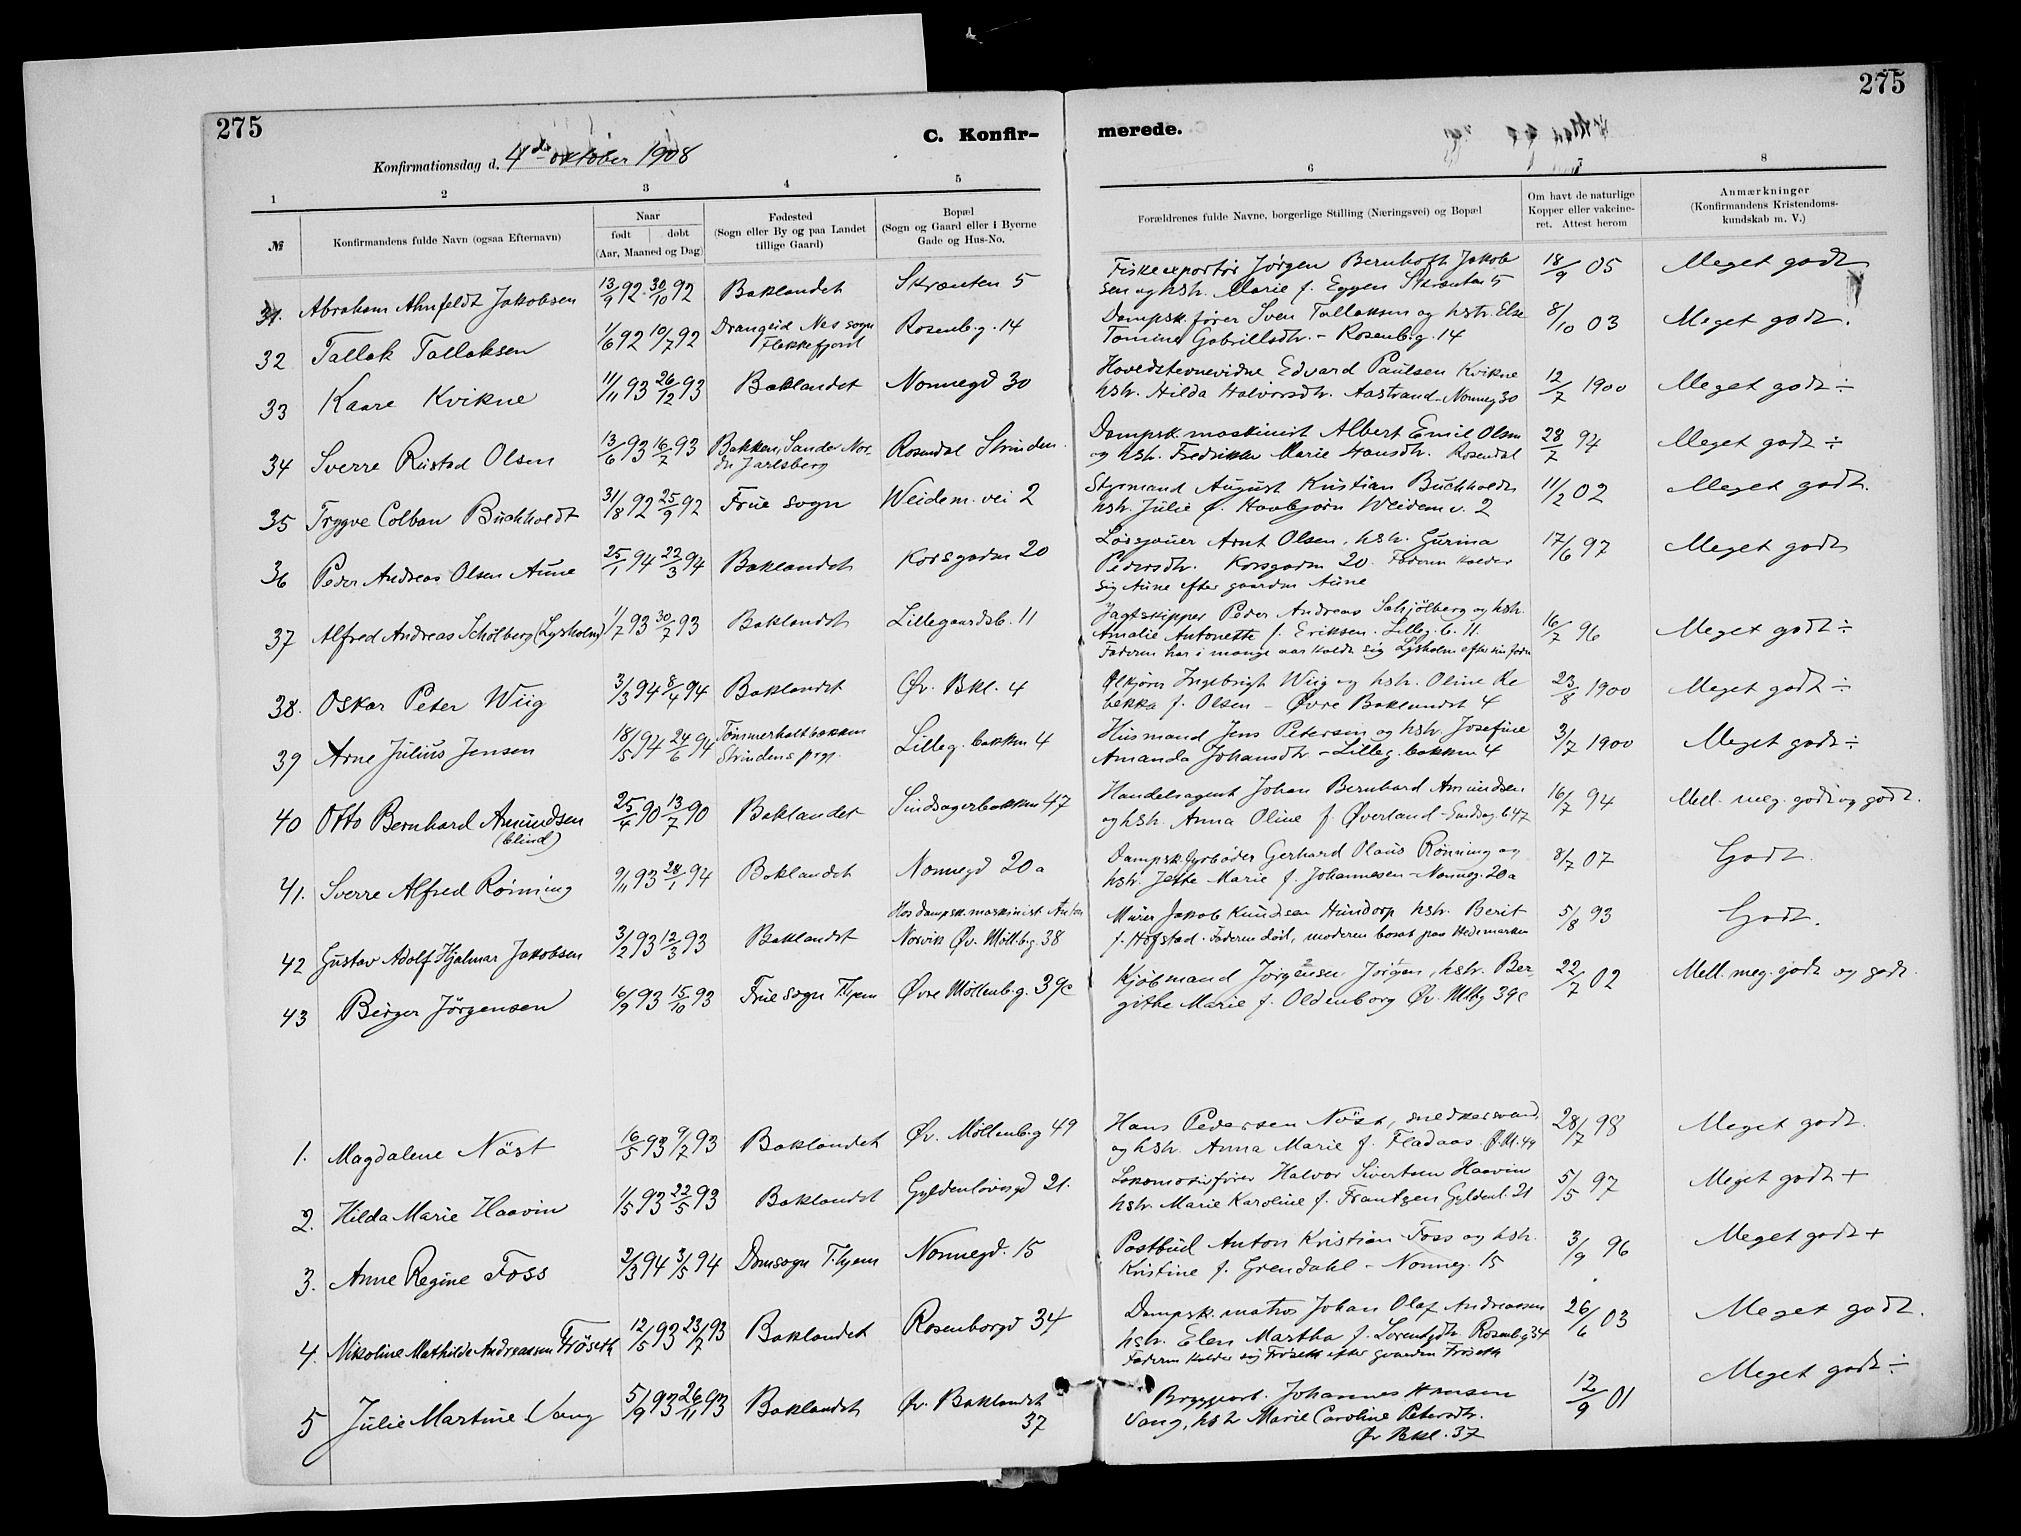 275
275
C. Konfir-
merede.
Konfirmationsdag d. 4de oktober 1908
1 2 3 4 5 6 7 8
№ Konfirmandens fulde Navn (ogsaa Efternavn)
Naar født døbt (Aar, Maaned og Dag)
Fødested (Sogn eller By og paa Landet tillige Gaard)
Bopæl (Sogn og Gaard eller i Byerne Gade og Hus-No.
Forældrenes fulde Navne, borgerlige Stilling (Næringsvei) og Bopæl
Om havt de naturlige Kopper eller vakcineret. Attest herom
Anmærkninger (Konfirmandens Kristendomskundskab m. V.)
31. Abraham Ahnfeldt Jakobsen 13/9 92 30/10 92 Baklandet Skrænten 5 Fiskeexportør Jørgen Bernhoft Jakob
sen og hstr. Marie f. Eggen Skrænten 5 18/9 05 Meget godt
32 Tallak Tallaksen 1/6 92 10/7 92 Drangeid Nes sogn Flekkefjord Rosenb.g. 14 Dampsk.fører Sven Tallaksen og hstr. Else
Tomine Gabrillsdtr. - Rosenb.g. 14 8/10 03 Meget godt.
33 Kaare Kvikne 11/11 93 26/12 93 Baklandet Nonnegd 30 Hovedstevnevidne Edvard Paulsen Kvikne
hstr. Hilda Halvorsdtr. Aastrand - Nonneg 30 12/7 1900 Meget godt ÷
34 Sverre Rustad Olsen 13/6 93 16/7 93 Bakken, Sander Nordr Jarlsberg Rosendal Strinden. Dampsk.maskinist Albert Emil Olsen
og hstr. Fredrikke Marie Hansdtr. Rosendal 28/7 94 Meget godt ÷
35 Trygve Colban Buchholdt 31/8 92 25/9 92 Frue sogn Weidem. vei 2 Styrmand August Kristian Buchholdt
hstr. Julie f. Havbjørn Weidem v. 2 11/2 02 Meget godt.
36 Peder Andreas Olsen Aune 25/1 94 22/3 94 Baklandet Korsgaden 20 Løsgjører Arnt Olsen, hstr. Gurina
Pedersdtr. Korsgaden 20. Faderen kalder
sig Aune efter gaarden Aune 17/6 97 Meget godt
37 Alfred Andreas Schølberg (Lysholm) 1/7 93 30/7 93 Baklandet Lillegaardsb. 11 Jagtskipper Peder Andreas Schjølberg og hstr.
Amalie Antonette f. Eriksen. Lilleg. b. 11.
Faderen har i mange aar kaldt sig Lysholm efter sin 16/7 96 Meget godt ÷
38. Oskar Peter Wiig 3/3 94 8/4 94 Baklandet Øv. Bkl. 4 Ølkjører Ingebrigt Wiig og hstr. Oline Re
bekka f. Olsen - Øvre Baklandet 4 23/8 1900 Meget godt ÷
39 Arne Julius Jensen 18/5 94 24/6 94 Tømmerholtbakken Strindens prgj. Lilleg. bakken 4 Husmand Jens Petersen og hstr. Josefine
Amanda Johansdtr. - Lilleg. bakken 4 3/7 1900 Meget godt ÷
40 Otto Bernhard Amundsen (blind) 25/4 90 13/7 90 Baklandet Sindsagerbakken 47 Handelsagent Johan Bernhard Amundsen
og hstr. Anna Oline f. Øverland - Sindsag. b. 47 16/7 94 Mell. meg. godt og godt.
41. Sverre Alfred Rønning 9/11 93 28/1 94 Baklandet Nonnegd 20a Dampsk.fyrbøder Gerhard Olaus Rønning og
hstr. Jette Marie f. Johannesen - Nonneg. 20a 8/7 07 Godt.
42 Gustav Adolf Hjalmar Jakobsen 3/2 93 12/3 93 Baklandet Hos dampsk.maskinist Anton Norvik Øv. Møllb.g. 38 Murer Jakob Knudsen Hundorp hstr. Berit
f. Hofstad. Faderen død, moderen bosat paa Hedemarken 5/8 93 Godt.
43 Birger Jørgensen 6/9 93 15/10 93 Frue sogn Thjem Øvre Møllenb.g. 39c Kjøbmand Jørgensen Jørgen, hstr. Ber-
gitte Marie f. Oldenborg Øv. Mllbg 39c 22/7 02 Mell. meg. godt og godt.
1. Magdalene Nøst 16/5 93 9/7 93 Baklandet Øv. Møllenb.g 49 Hans Pedersen Nøst, snedkersvend,
og hstr. Anna Marie f. Fladaas. Ø.M. 49 28/7 98 Meget godt.
2. Hilda Marie Haavin 1/5 93 22/5 93 Baklandet Gyldenløvesgd 21. Lokomotivfører Halvor Sivertsen Haavin
hstr. Marie Karoline f. Frantzen Gyldenl. 21 5/5 97 Meget godt +
3. Anne Regine Foss 2/3 94 3/5 94 Domsogn Thjem Nonnegd. 15 Postbud Anton Kristian Foss og hstr.
Kristine f. Grendahl - Nonneg. 15 3/9 96 Meget godt +
4. Nikoline Mathilde Andreassen Frøseth 12/5 93 23/7 93 Baklandet Rosenborgd 34 Dampsk. matros Johan Olaf Andreassen
hstr. Elen Martha f. Lorentzdtr. Rosenb.g 34
Faderen kalder sig Frøseth efter gaarden Frøseth 26/6 03 Meget godt.
5 Julie Martine Vang 5/9 93 26/11 93 Baklandet Øv. Baklandet 37 Bryggearb. Johannes Hansen
Vang, hstr Marie Caroline Petersdtr.
Øv Bkl. 37 12/9 01 Meget godt ÷